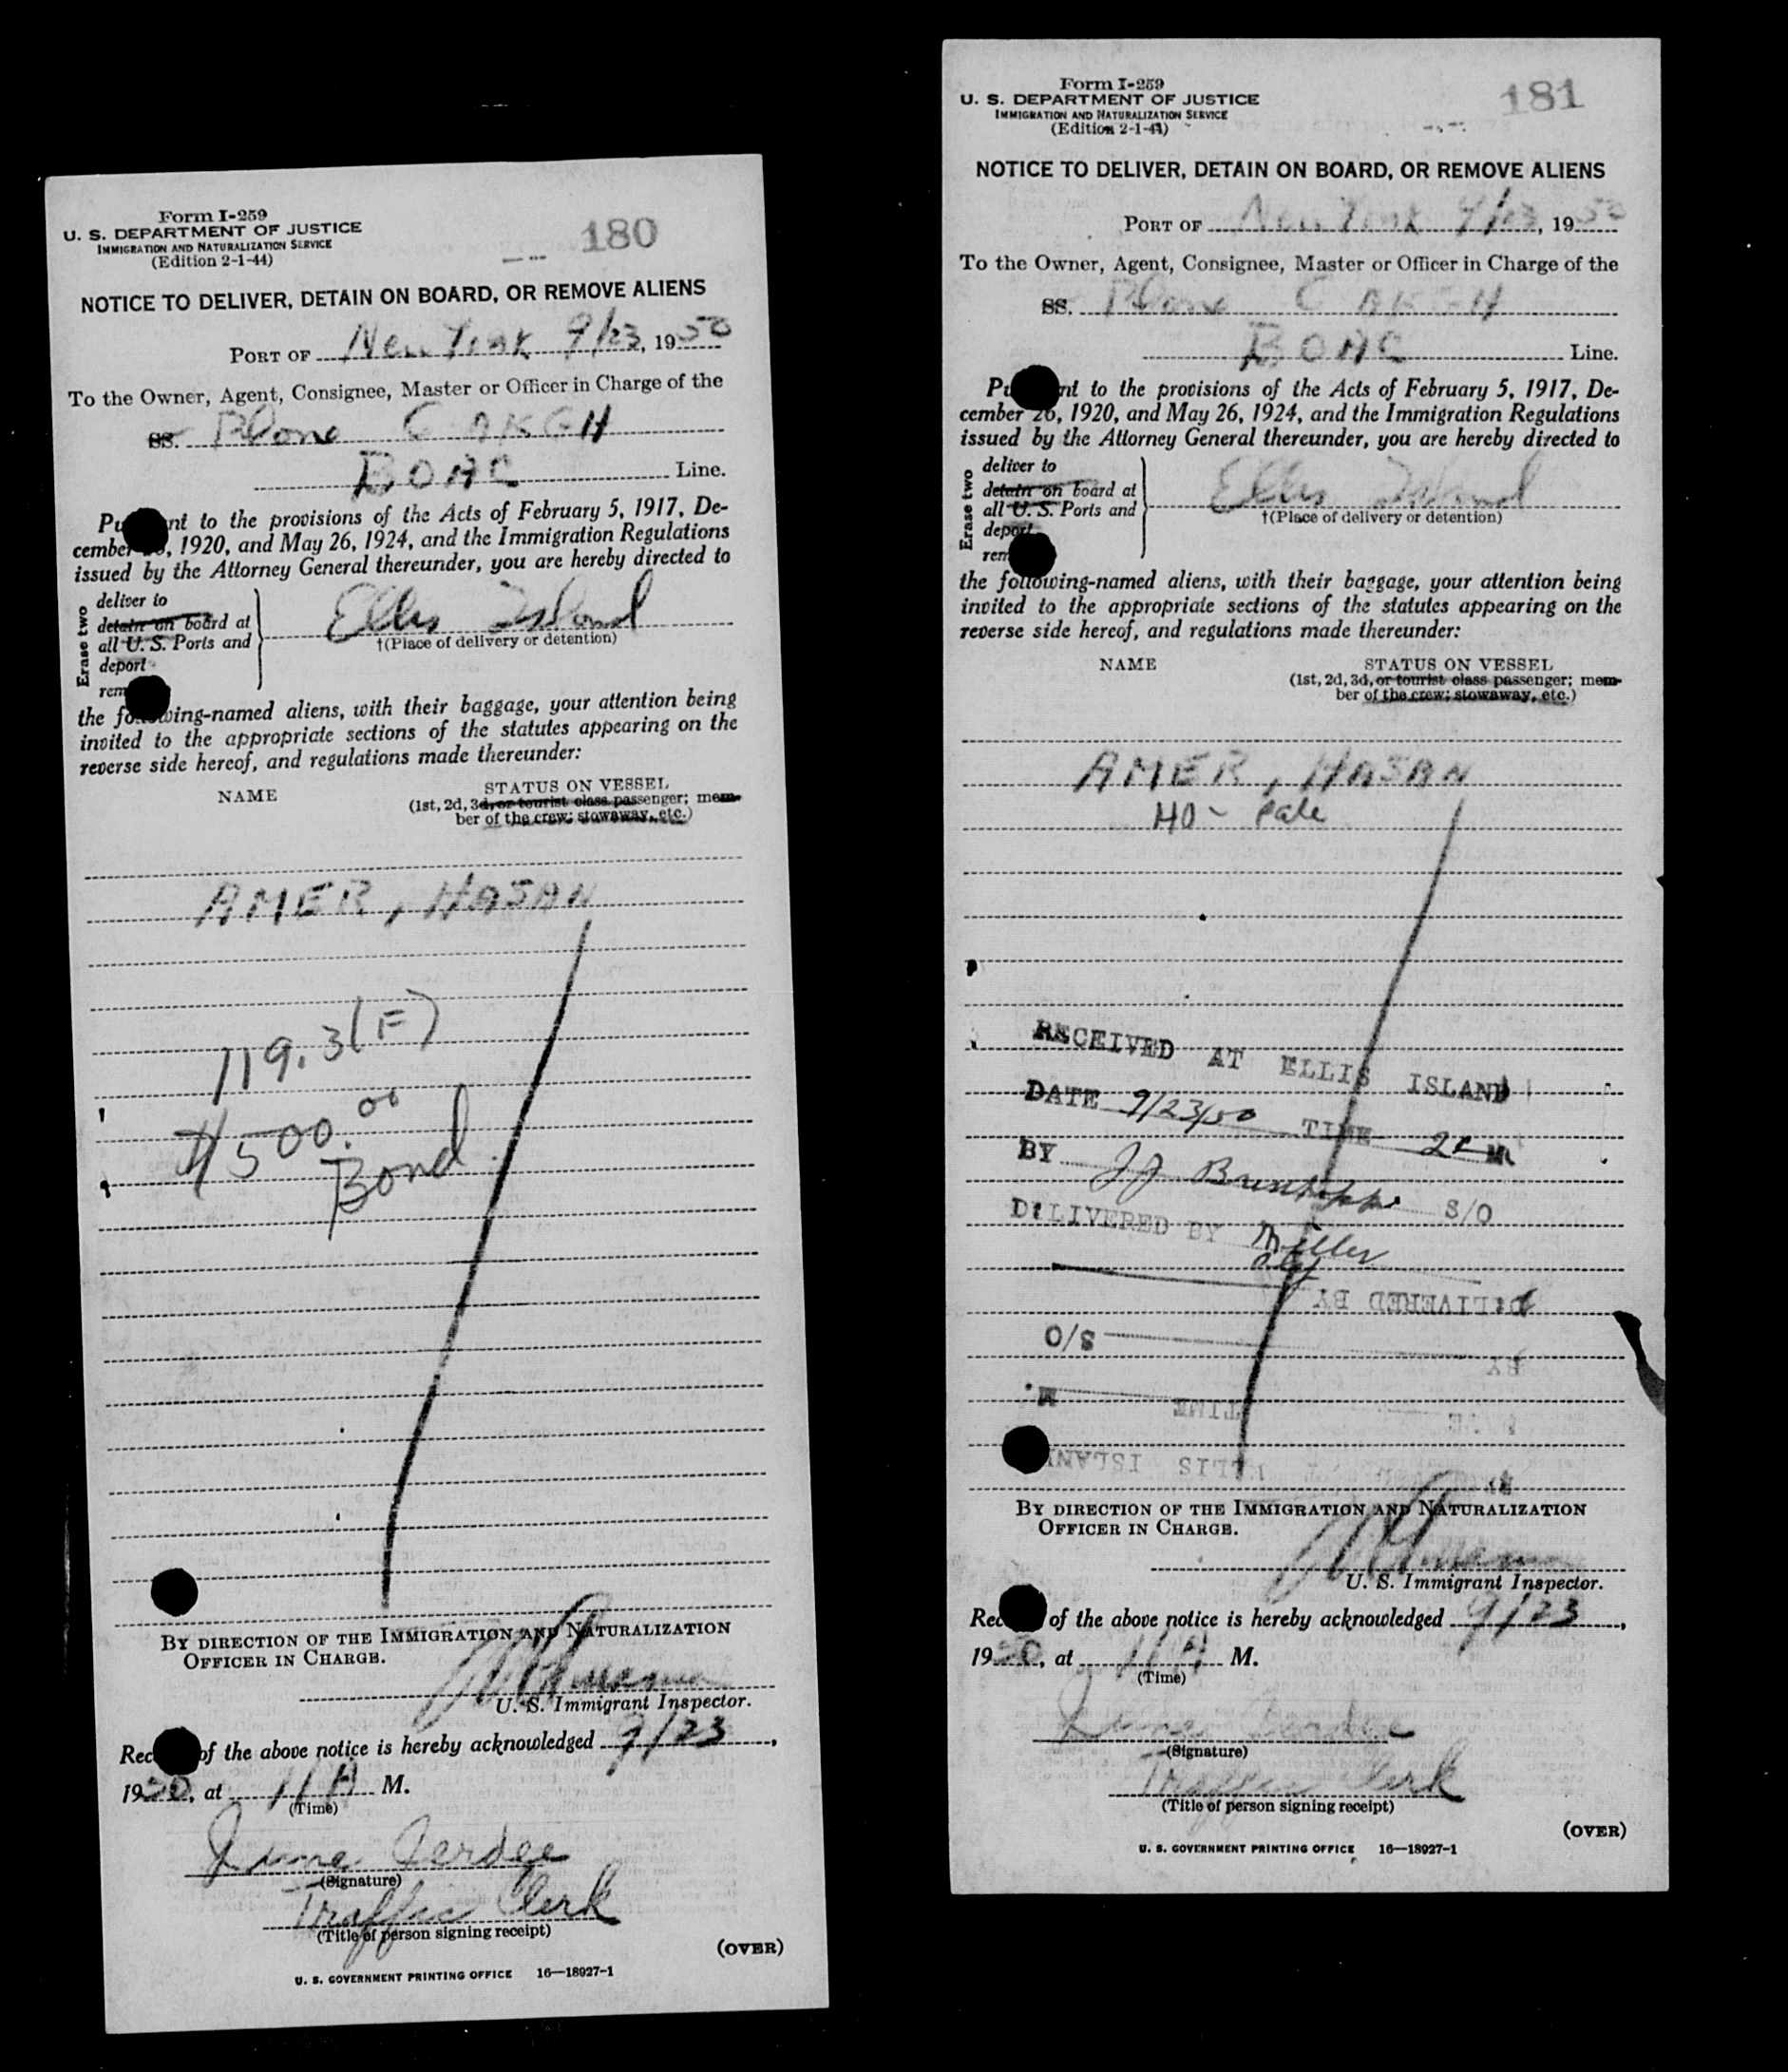 Form I-259
U. S. DEPARTMENT OF JUSTICE
IMMIGRATION AND NATURALIZATION SERVICE
(Edition 2-1-44)
180
NOTICE TO DELIVER, DETAIN ON BOARD, OR REMOVE ALIENS
PORT OF New York 9/23, 1950
To the Owner, Agent, Consignee, Master or Officer in Charge of the
SS. Plane G AKGH
BOAC Line.
Pu nt to the provisions of the Acts of February 5, 1917, De-
cember , 1920, and May 26, 1924, and the Immigration Regulations
issued by the Attorney General thereunder, you are hereby directed to
Erase two
deliver to
detain on board at
all U. S. Ports and
deport
rem
Ellis Island
†(Place of delivery or detention)
the following-named aliens, with their baggage, your attention being
invited to the appropriate sections of the statutes appearing on the
reverse side hereof, and regulations made thereunder:
NAME STATUS ON VESSEL
(1st, 2d, 3d, or tourist class passenger; mem-
ber of the crew; stowaway, etc.)
AMER, HASAN
119.3(F)
$500.00
Bond
BY DIRECTION OF THE IMMIGRATION AND NATURALIZATION
OFFICER IN CHARGE.
U. S. Immigrant Inspector.
Rec of the above notice is hereby acknowledged 9/23,
1950, at 11 A M.
(Time)
(Signature)
Traffic Clerk
(Title of person signing receipt)
(OVER)
U. S. GOVERNMENT PRINTING OFFICE 16—18927-1
Form I-259
U. S. DEPARTMENT OF JUSTICE
IMMIGRATION AND NATURALIZATION SERVICE
(Edition 2-1-44)
181
NOTICE TO DELIVER, DETAIN ON BOARD, OR REMOVE ALIENS
PORT OF New York 9/23, 1950
To the Owner, Agent, Consignee, Master or Officer in Charge of the
SS. Plane G AKGH
BOAC Line.
Pu nt to the provisions of the Acts of February 5, 1917, De-
cember 26, 1920, and May 26, 1924, and the Immigration Regulations
issued by the Attorney General thereunder, you are hereby directed to
Erase two
deliver to
detain on board at
all U. S. Ports and
deport
rem
Ellis Island
†(Place of delivery or detention)
the following-named aliens, with their baggage, your attention being
invited to the appropriate sections of the statutes appearing on the
reverse side hereof, and regulations made thereunder:
NAME STATUS ON VESSEL
(1st, 2d, 3d, or tourist class passenger; mem-
ber of the crew; stowaway, etc.)
AMER, HASAN
RECEIVED AT ELLIS ISLAND
DATE 9/23/50 TIME 2P M
BY JJ S/O
DELIVERED BY Miller
DELIVERED BY
S/O BY
M. TIME
ELLIS ISLAND
BY DIRECTION OF THE IMMIGRATION AND NATURALIZATION
OFFICER IN CHARGE.
U. S. Immigrant Inspector.
Rec of the above notice is hereby acknowledged 9/23,
1950, at 11 A M.
(Time)
(Signature)
Traffic Clerk
(Title of person signing receipt)
(OVER)
U. S. GOVERNMENT PRINTING OFFICE 16—18927-1